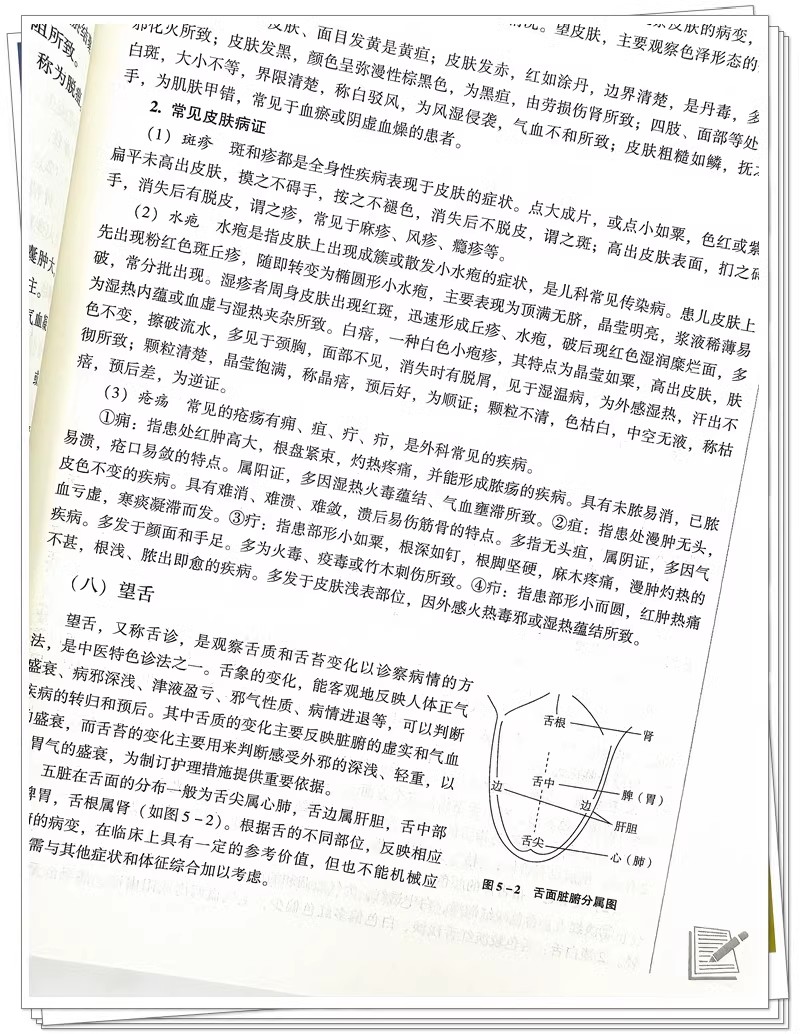 阻所致。
称为脱疽
囊肿大
主。
气血凝
皮肤的病变，
皮肤、面目发黄是黄疸；皮肤发赤，红如涂丹，边界清楚，是丹毒，多
邪化火所致；皮肤发黑，颜色呈弥漫性棕黑色，为黑疸，由劳损伤肾所致；四肢、面部等处
况。望皮肤，主要观察色泽形态的
白斑，大小不等，界限清楚，称白驳风，为风湿侵袭，气血不和所致；皮肤粗糙如鳞，抚之
手，为肌肤甲错，常见于血瘀或阴虚血燥的患者。
2. 常见皮肤病证
（1）斑疹 斑和疹都是全身性疾病表现于皮肤的症状。点大成片，或点小如粟，色红或紫
扁平未高出皮肤，摸之不碍手，按之不褪色，消失后不脱皮，谓之斑；高出皮肤表面，扪之碍
手，消失后有脱皮，谓之疹，常见于麻疹、风疹、瘾疹等。
（2）水疱 水疱是指皮肤上出现成簇或散发小水疱的症状，是儿科常见传染病。患儿皮肤上
先出现粉红色斑丘疹，随即转变为椭圆形小水疱，主要表现为顶满无脐，晶莹明亮，浆液稀薄易
破，常分批出现。湿疹者周身皮肤出现红斑，迅速形成丘疹、水疱，破后现红色湿润糜烂面，多
为湿热内蕴或血虚与湿热夹杂所致。白㾦，一种白色小疱疹，其特点为晶莹如粟，高出皮肤，肤
色不变，擦破流水，多见于颈胸，面部不见，消失时有脱屑，见于湿温病，为外感湿热，汗出不
彻所致；颗粒清楚，晶莹饱满，称晶㾦，预后好，为顺证；颗粒不清，色枯白，中空无液，称枯
㾦，预后差，为逆证。
（3）疮疡 常见的疮疡有痈、疽、疔、疖，是外科常见的疾病。
①痈：指患处红肿高大，根盘紧束，灼热疼痛，并能形成脓疡的疾病。具有未脓易消，已脓
易溃，疮口易敛的特点。属阳证，多因湿热火毒蕴结、气血壅滞所致。②疽：指患处漫肿无头，
皮色不变的疾病。具有难消、难溃、难敛，溃后易伤筋骨的特点。多指无头疽，属阴证，多因气
血亏虚，寒痰凝滞而发。③疔：指患部形小如粟，根深如钉，根脚坚硬，麻木疼痛，漫肿灼热的
疾病。多发于颜面和手足。多为火毒、疫毒或竹木刺伤所致。④疖：指患部形小而圆，红肿热痛
不甚，根浅、脓出即愈的疾病。多发于皮肤浅表部位，因外感火热毒邪或湿热蕴结所致。
（八）望舌
望舌，又称舌诊，是观察舌质和舌苔变化以诊察病情的方
法，是中医特色诊法之一。舌象的变化，能客观地反映人体正气
盛衰、病邪深浅、津液盈亏、邪气性质、病情进退等，可以判断
疾病的转归和预后。其中舌质的变化主要反映脏腑的虚实和气血
的盛衰，而舌苔的变化主要用来判断感受外邪的深浅、轻重，以
胃气的盛衰，为制订护理措施提供重要依据。
五脏在舌面的分布一般为舌尖属心肺，舌边属肝胆，舌中部
脾胃，舌根属肾（如图5-2）。根据舌的不同部位，反映相应
的病变，在临床上具有一定的参考价值，但也不能机械应
需与其他症状和体征综合加以考虑。
舌根
肾
舌中
脾（胃）
边
边
肝胆
舌尖
心（肺）
图5-2 舌面脏腑分属图